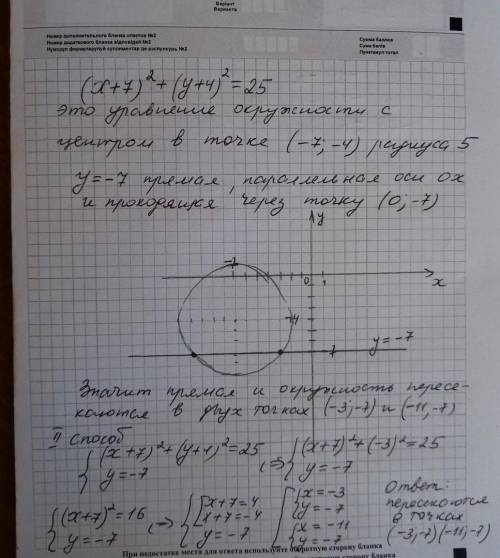 Вариант
Варианта
Номер дополнительного бланка ответов №2
Номер додаткового бланка відповідей №2
Сумма баллов
Сума балів
Пунктларл топал
(x+7)²+(y+4)²=25
это уравнение окружности с
центром в точке (-7; -4) радиуса 5
y=-7 прямая, параллельная оси ох
и проходящая через точку (0; -7)
y
-7
0 1
x
-4
y=-7
-7
Значит прямая и окружность пересе-
каются в двух точках (-3;-7) и (-11,-7)
II способ
{(x+7)²+(y+4)²=25 {y=-7 => {(x+7)²+(-3)²=25 {y=-7
{(x+7)²=16 {y=-7 => {[x+7=4 [x+7=-4 {y=-7 [{x=-3 {y=-7 {x=-11 {y=-7
Ответ:
пересекаются
в точках
(-3;-7) (-11;-7)
При недостатке места для ответа используйте оборотную сторону бланка